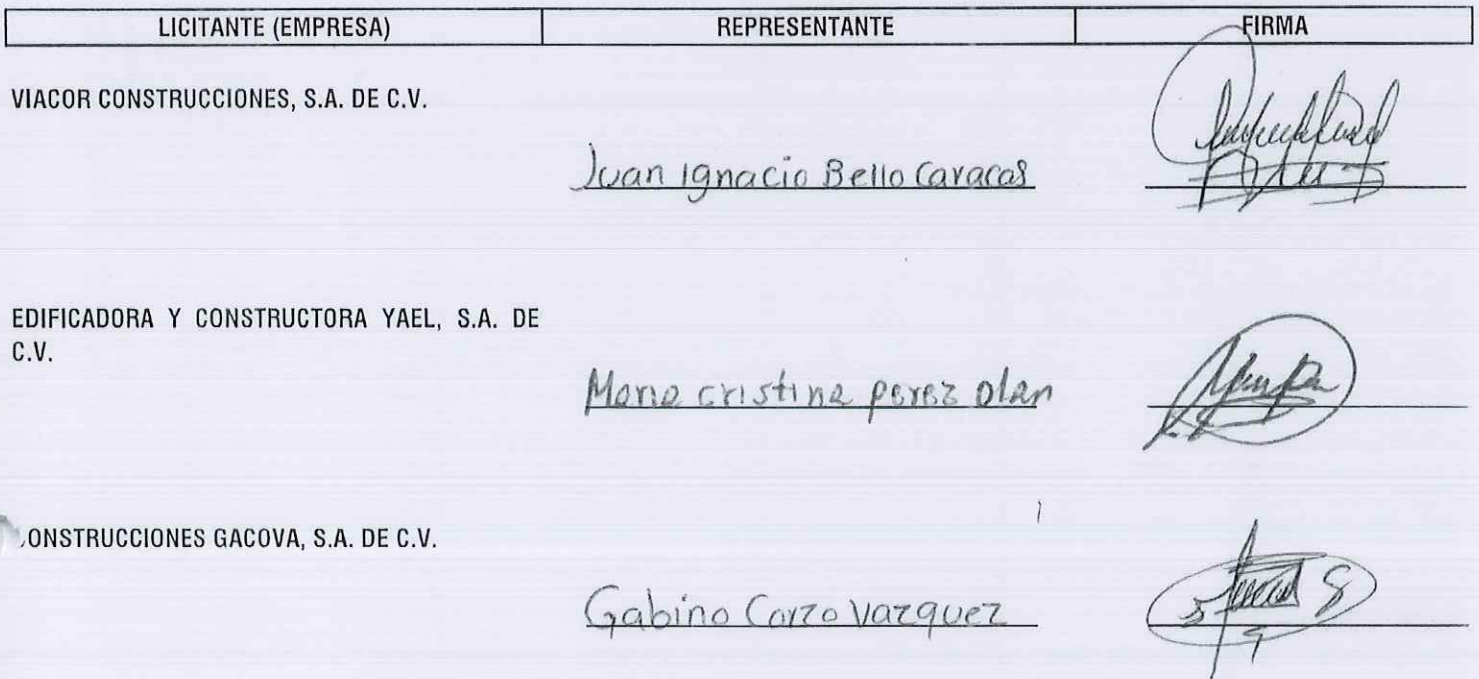 LICITANTE (EMPRESA) REPRESENTANTE FIRMA
VIACOR CONSTRUCCIONES, S.A. DE C.V.
Juan Ignacio Bello Caracas
EDIFICADORA Y CONSTRUCTORA YAEL, S.A. DE
C.V.
Maria cristina perez olan
ONSTRUCCIONES GACOVA, S.A. DE C.V.
Gabino Corzo Vazquez